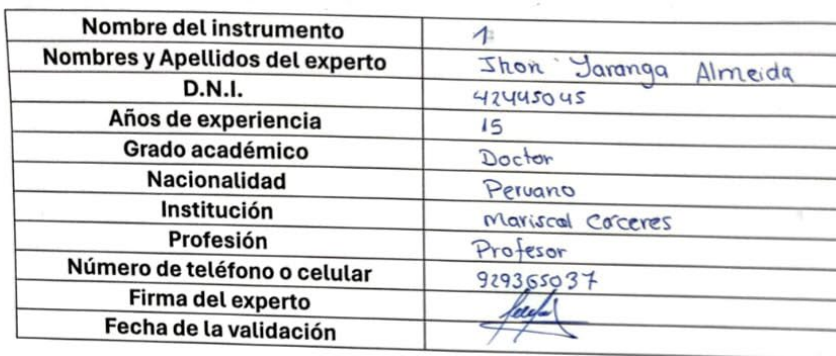 Nombre del instrumento 1
Nombres y Apellidos del experto Jhon Yaranga Almeida
D.N.I. 42445045
Años de experiencia 15
Grado académico Doctor
Nacionalidad Peruano
Institución Mariscal Caceres
Profesión Profesor
Número de teléfono o celular 929365037
Firma del experto
Fecha de la validación